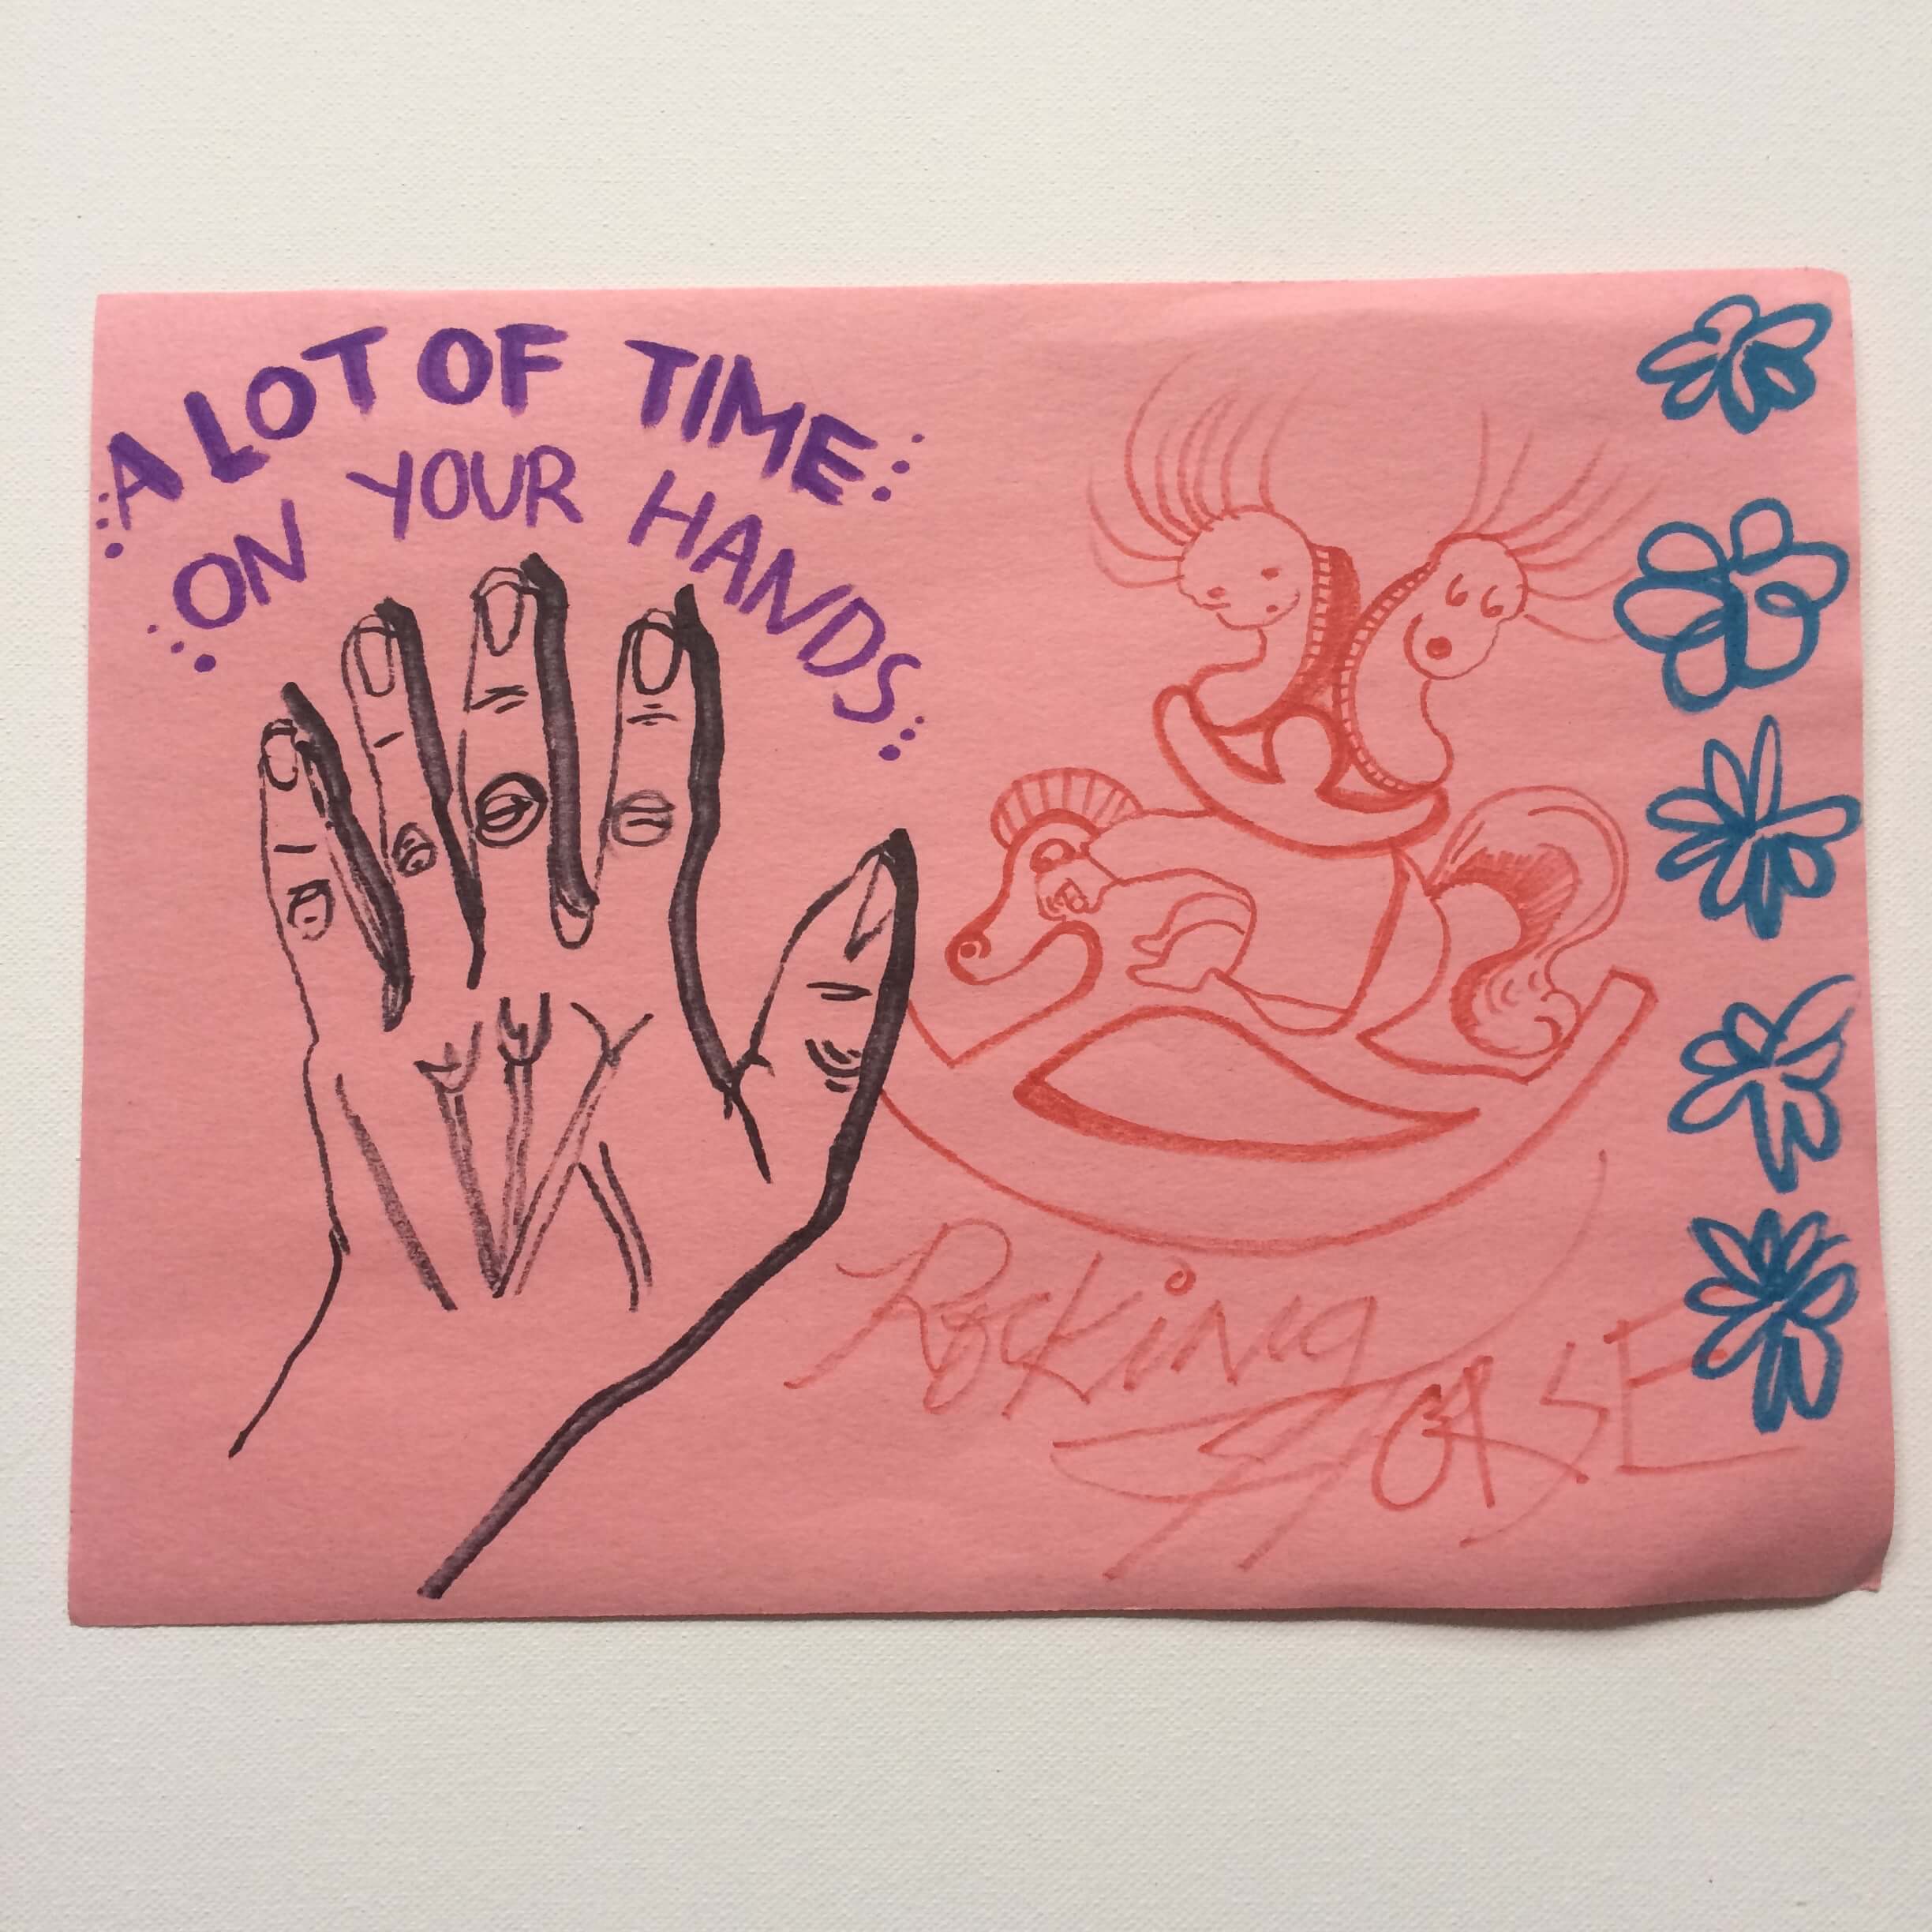 A LOT OF TIME
ON YOUR HANDS
Rocking
HORSE